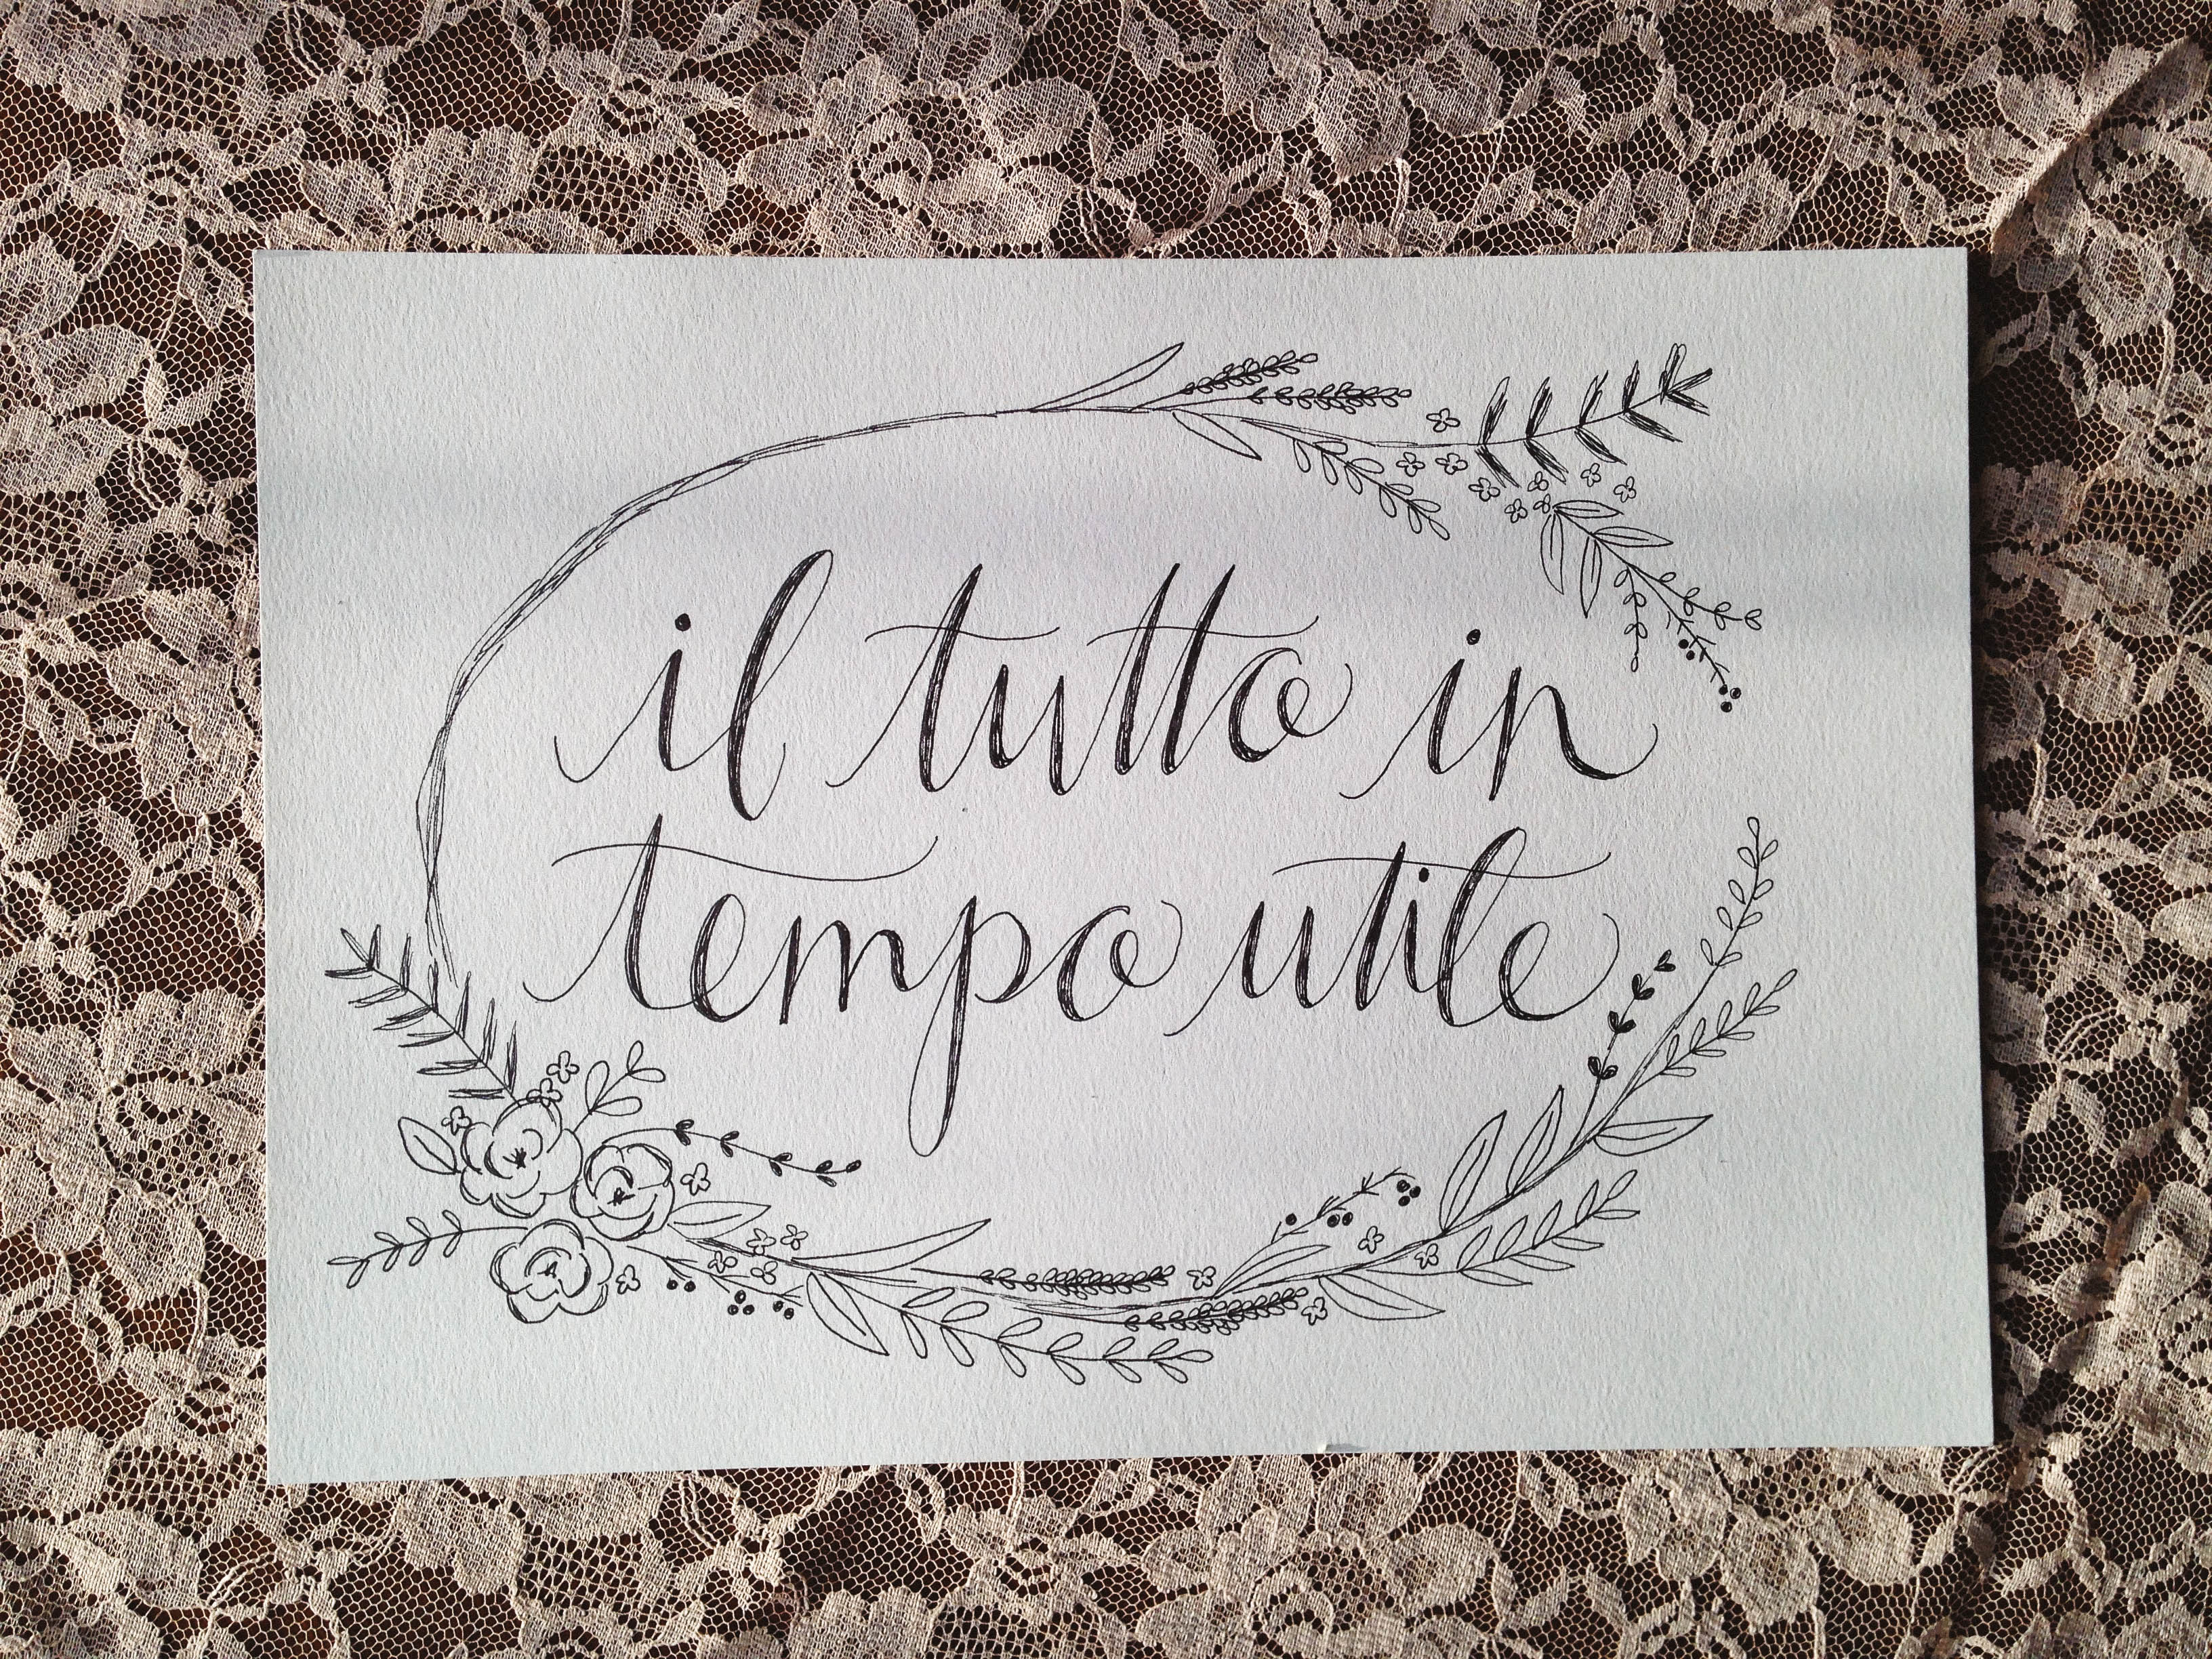 il tutto in
tempo utile